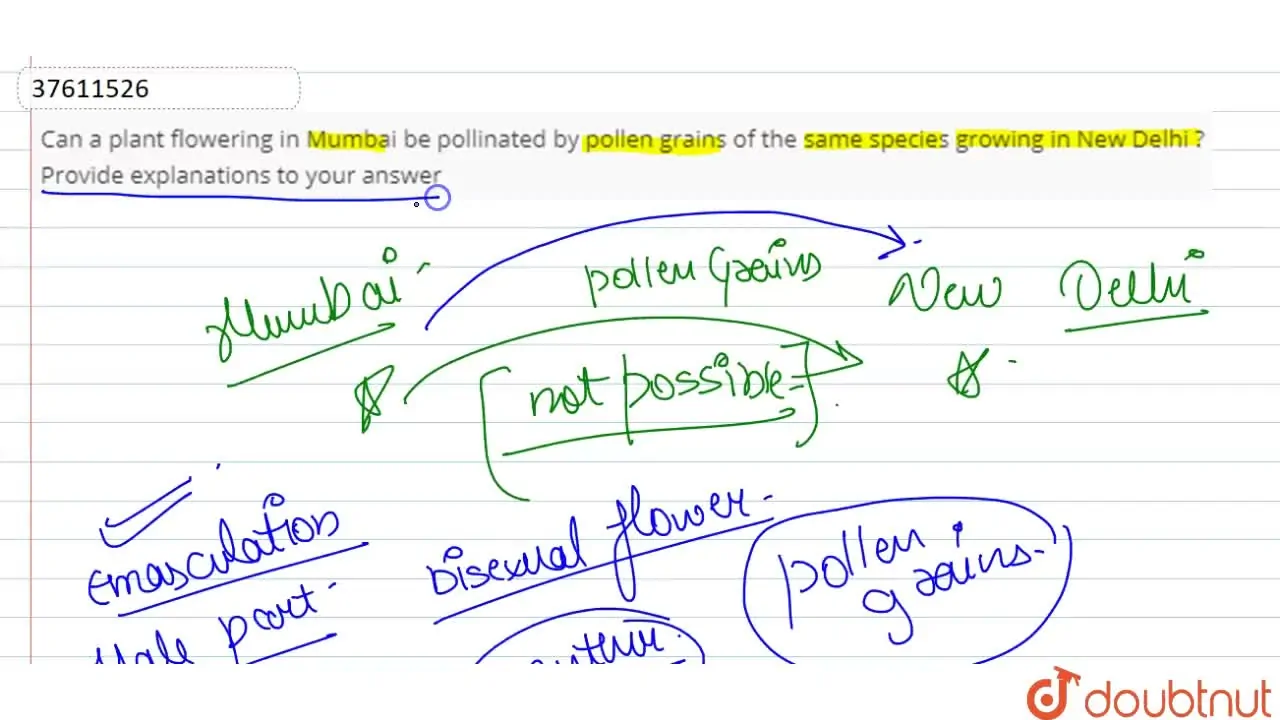 37611526
Can a plant flowering in Mumbai be pollinated by pollen grains of the same species growing in New Delhi ?
Provide explanations to your answer
Mumbai
pollen Grains
New Delhi
not possible
Emasculation
Bisexual flower
pollen
grains
Male part
anther
doubtnut